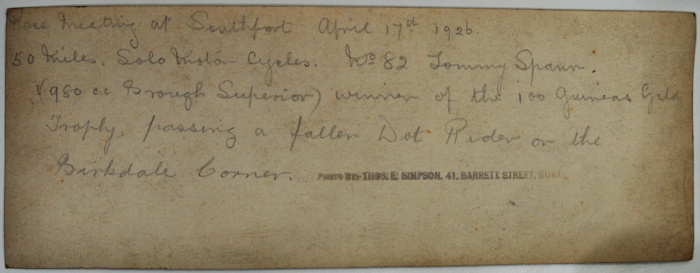 Race Meeting at Southport April 17th 1926
50 Miles. Solo Motor Cycles. No 82 Tommy Spann.
(980 cc Brough Superior) winner of the 100 Guineas Gold
Trophy, passing a fallen Dot Rider on the
Birkdale Corner. PHOTO BY:- THOS. E. SIMPSON, 41, BARRETT STREET,